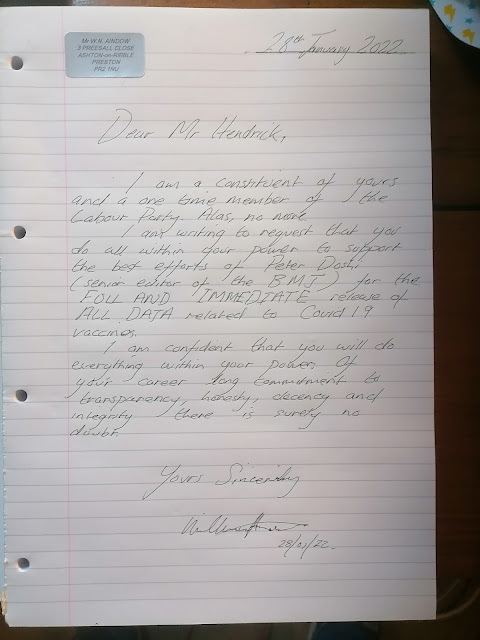 Mr W.N. AINDOW
3 PREESALL CLOSE
ASHTON-on-RIBBLE
PRESTON
PR2 1NU
28th January 2022
Dear Mr Hendrick,
I am a constituent of yours
and a one time member of the
Labour Party. Alas, no more
I am writing to request that you
do all within your power to support
the best efforts of Peter Doshi
(senior editor of the BMJ) for the
FULL AND IMMEDIATE release of
ALL DATA related to Covid 19
vaccines.
I am confident that you will do
everything within your power. Of
your career long commitment to
transparency, honesty, decency and
integrity there is surely no
doubt.
Yours Sincerely
28/01/22.